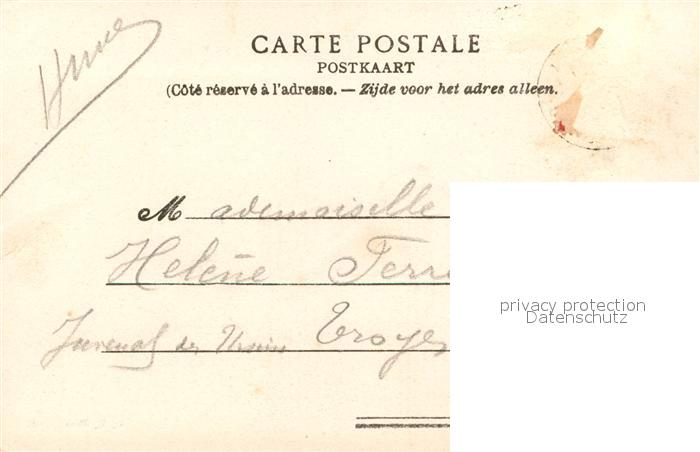 CARTE POSTALE
POSTKAART
(Côté réservé à l'adresse. — Zijde voor het adres alleen.
Mademoiselle
Helène Terre
Juvenal des Ursins Troyes
privacy protection
Datenschutz